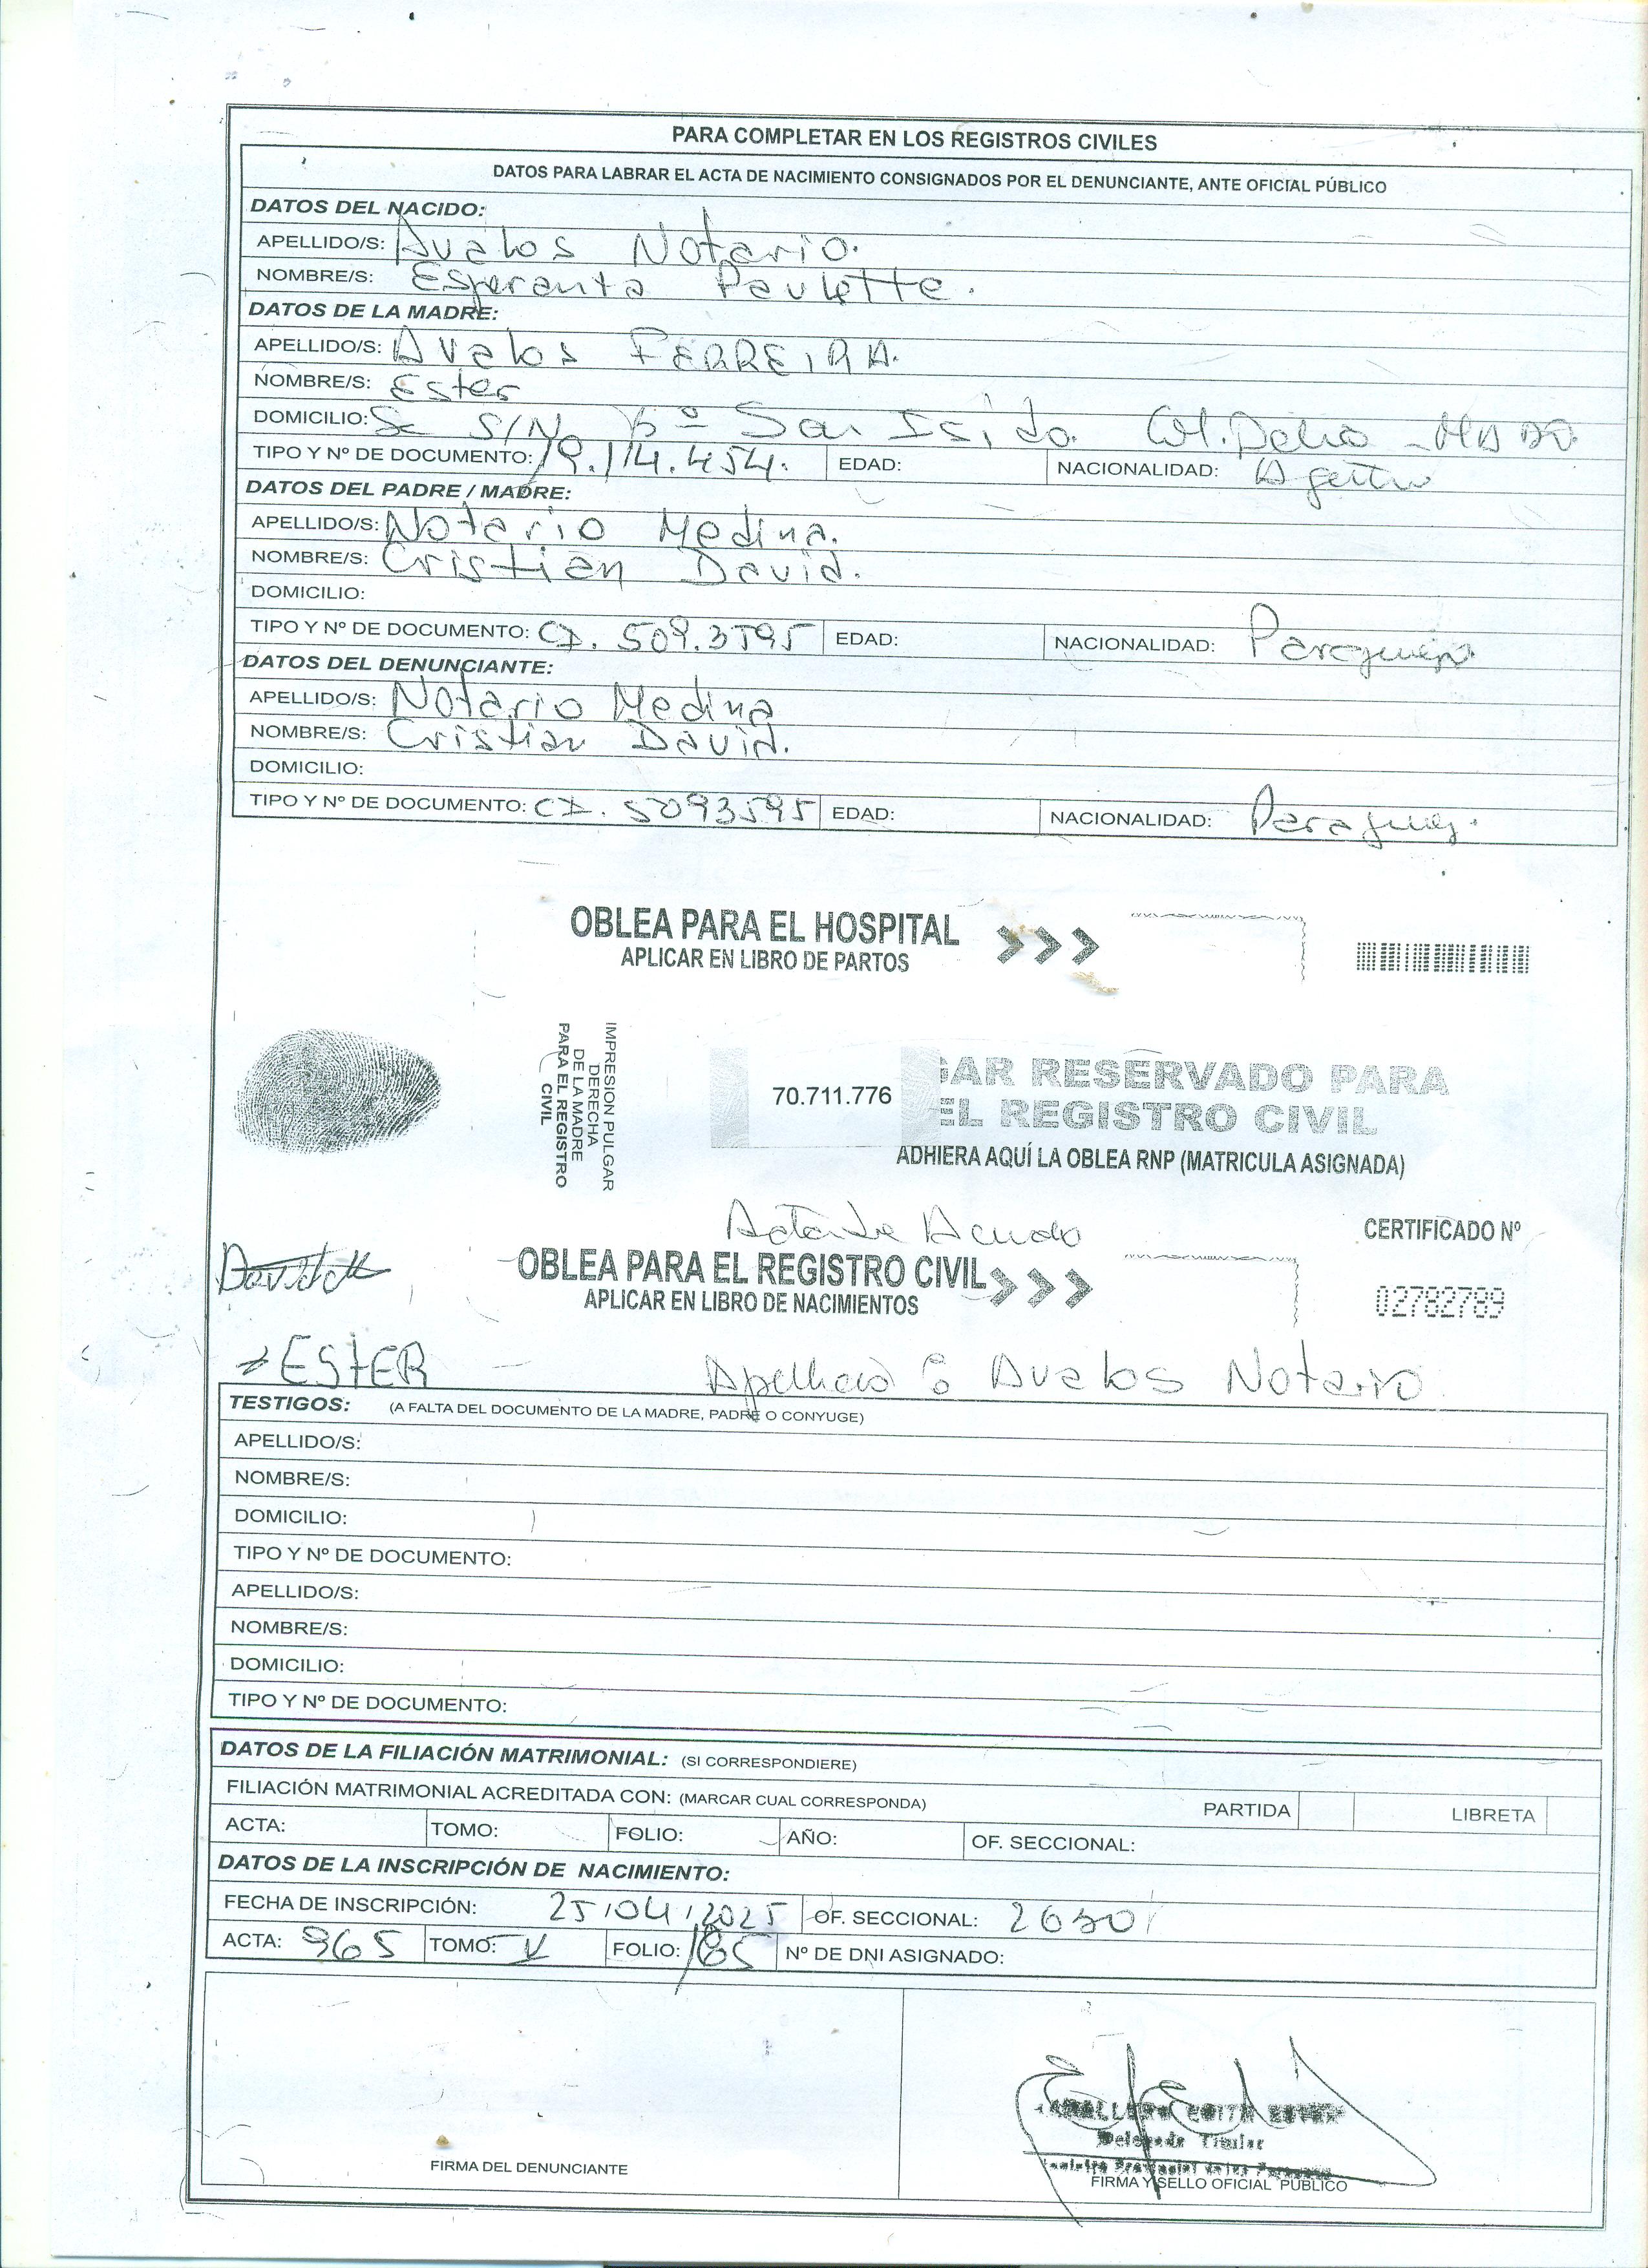 PARA COMPLETAR EN LOS REGISTROS CIVILES
DATOS PARA LABRAR EL ACTA DE NACIMIENTO CONSIGNADOS POR EL DENUNCIANTE, ANTE OFICIAL PÚBLICO
DATOS DEL NACIDO:
APELLIDO/S: Avalos Notario.
NOMBRE/S: Esperanta Paulette.
DATOS DE LA MADRE:
APELLIDO/S: Avalos FERREIRA.
NOMBRE/S: Ester
DOMICILIO: S/N Bº San Isidro
TIPO Y Nº DE DOCUMENTO: 19.114.454. EDAD: NACIONALIDAD:
DATOS DEL PADRE / MADRE:
APELLIDO/S: Notario Medina.
NOMBRE/S: Cristian David.
DOMICILIO:
TIPO Y Nº DE DOCUMENTO: CI. 509.3595 EDAD: NACIONALIDAD: Paraguayo
DATOS DEL DENUNCIANTE:
APELLIDO/S: Notario Medina
NOMBRE/S: Cristian David.
DOMICILIO:
TIPO Y Nº DE DOCUMENTO: CI. 5093595 EDAD: NACIONALIDAD: Paraguay.
OBLEA PARA EL HOSPITAL >>>
APLICAR EN LIBRO DE PARTOS
IMPRESION PULGAR
DERECHA
DE LA MADRE
PARA EL REGISTRO
CIVIL
70.711.776
GAR RESERVADO PARA
EL REGISTRO CIVIL
ADHIERA AQUÍ LA OBLEA RNP (MATRICULA ASIGNADA)
CERTIFICADO Nº
OBLEA PARA EL REGISTRO CIVIL >>>
APLICAR EN LIBRO DE NACIMIENTOS
02782789
ESTER
Apellido : Avalos Notario
TESTIGOS: (A FALTA DEL DOCUMENTO DE LA MADRE, PADRE O CONYUGE)
APELLIDO/S:
NOMBRE/S:
DOMICILIO:
TIPO Y Nº DE DOCUMENTO:
APELLIDO/S:
NOMBRE/S:
DOMICILIO:
TIPO Y Nº DE DOCUMENTO:
DATOS DE LA FILIACIÓN MATRIMONIAL: (SI CORRESPONDIERE)
FILIACIÓN MATRIMONIAL ACREDITADA CON: (MARCAR CUAL CORRESPONDA) PARTIDA LIBRETA
ACTA: TOMO: FOLIO: AÑO: OF. SECCIONAL:
DATOS DE LA INSCRIPCIÓN DE NACIMIENTO:
FECHA DE INSCRIPCIÓN: 25/04/2025 OF. SECCIONAL:
ACTA: 965 TOMO: V FOLIO: 185 Nº DE DNI ASIGNADO:
Delegada Titular
FIRMA DEL DENUNCIANTE
FIRMA Y SELLO OFICIAL PÚBLICO